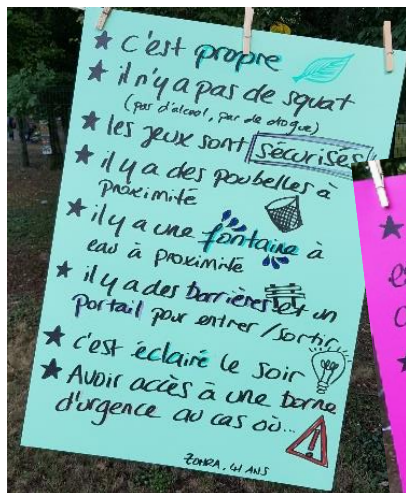 ★ c'est propre
★ il n'y a pas de squat
(pas d'alcool, pas de drogue)
★ les jeux sont sécurisés
★ il y a des poubelles à
proximité
★ il y a une fontaine à
eau à proximité
★ il y a des barrières et un
portail pour entrer/sortir
★ c'est éclairé le soir
★ Avoir accès à une borne
d'urgence au cas où...
ZOHRA, 41 ANS